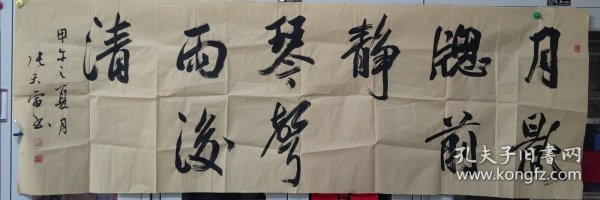 月影
牕前
靜
琴聲
雨後
清
甲午之夏月
张天雷书
孔夫子旧书网
www.kongfz.com